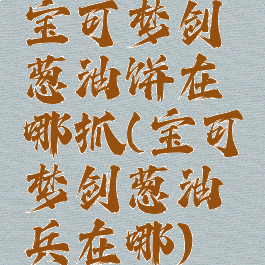 宝可梦剑
葱油饼在
哪抓(宝可
梦剑葱油
兵在哪)